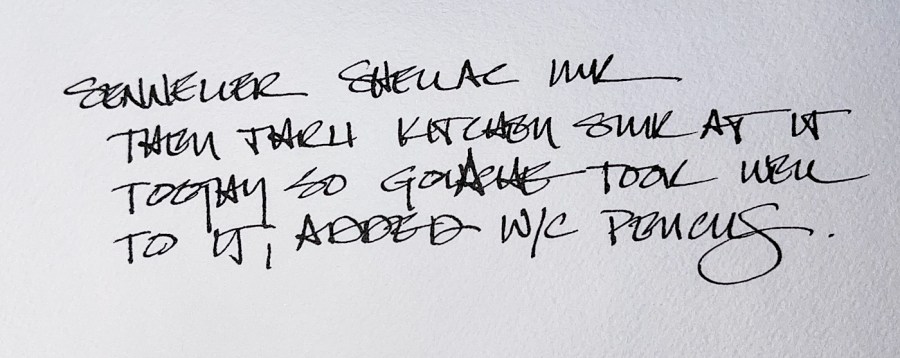 SENNELIER SHELLAC INK
THEN THREW KITCHEN SINK AT IT
TODAY SO GOUACHE TOOK WELL
TO IT, ADDED W/C PENCILS.